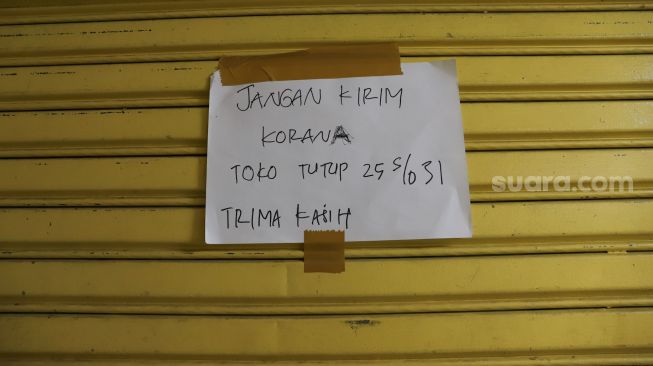 JANGAN KIRIM
KORANA
TOKO TUTUP 25 S/D 31
TRIMA KASIH
suara.com